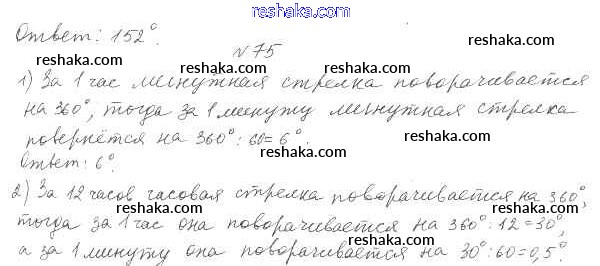 reshaka.com
Ответ: 152°.
reshaka.com
№75
reshaka.com
1) За 1 час минутная стрелка поворачивается
на 360°, тогда за 1 минуту минутная стрелка
повернётся на 360°:60=6°.
reshaka.com
reshaka.com
Ответ: 6°.
reshaka.com
2) За 12 часов часовая стрелка поворачивается на 360°,
reshaka.com
тогда за 1 час она поворачивается на 360°:12=30°,
reshaka.com
а за 1 минуту она поворачивается на 30°:60=0,5°.
reshaka.com
reshaka.com